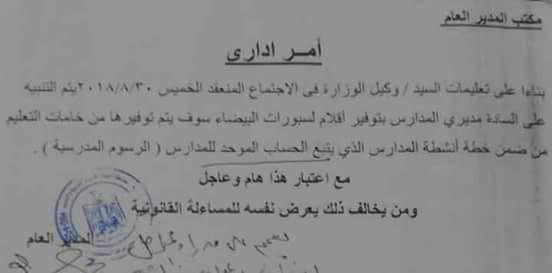 مكتب المدير العام
أمر ادارى
بناءا على تعليمات السيد / وكيل الوزارة فى الاجتماع المنعقد الخميس ٢٠١٨/٨/٣٠ يتم التنبيه
على السادة مديري المدارس بتوفير أقلام لسبورات البيضاء سوف يتم توفيرها من خامات التعليم
من ضمن خطة أنشطة المدارس الذي يتبع الحساب الموحد للمدارس ( الرسوم المدرسية ) .
مع اعتبار هذا هام وعاجل
ومن يخالف ذلك يعرض نفسه للمساءلة القانونية
المدير العام